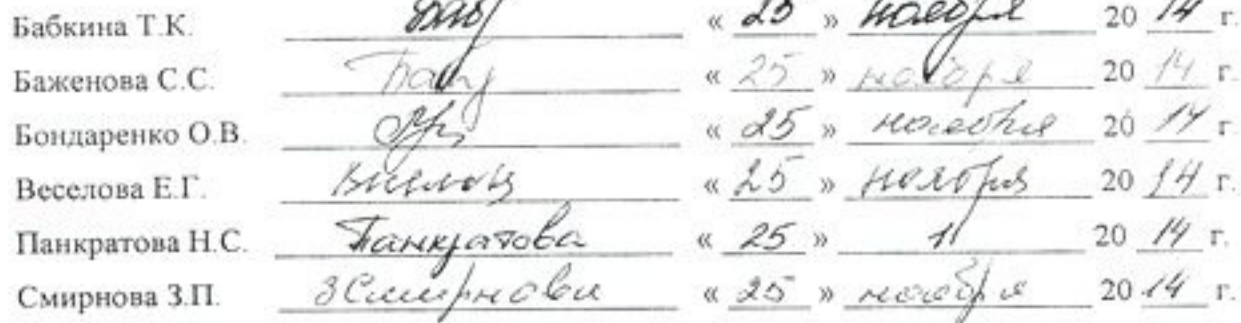 Бабкина Т.К. Баб « 25 » ноября 20 14 г.
Баженова С.С. « 25 » ноября 20 14 г.
Бондаренко О.В. « 25 » ноября 20 14 г.
Веселова Е.Г. « 25 » ноября 20 14 г.
Панкратова Н.С. Панкратова « 25 » 11 20 14 г.
Смирнова З.П. ЗСмирнова « 25 » ноября 20 14 г.